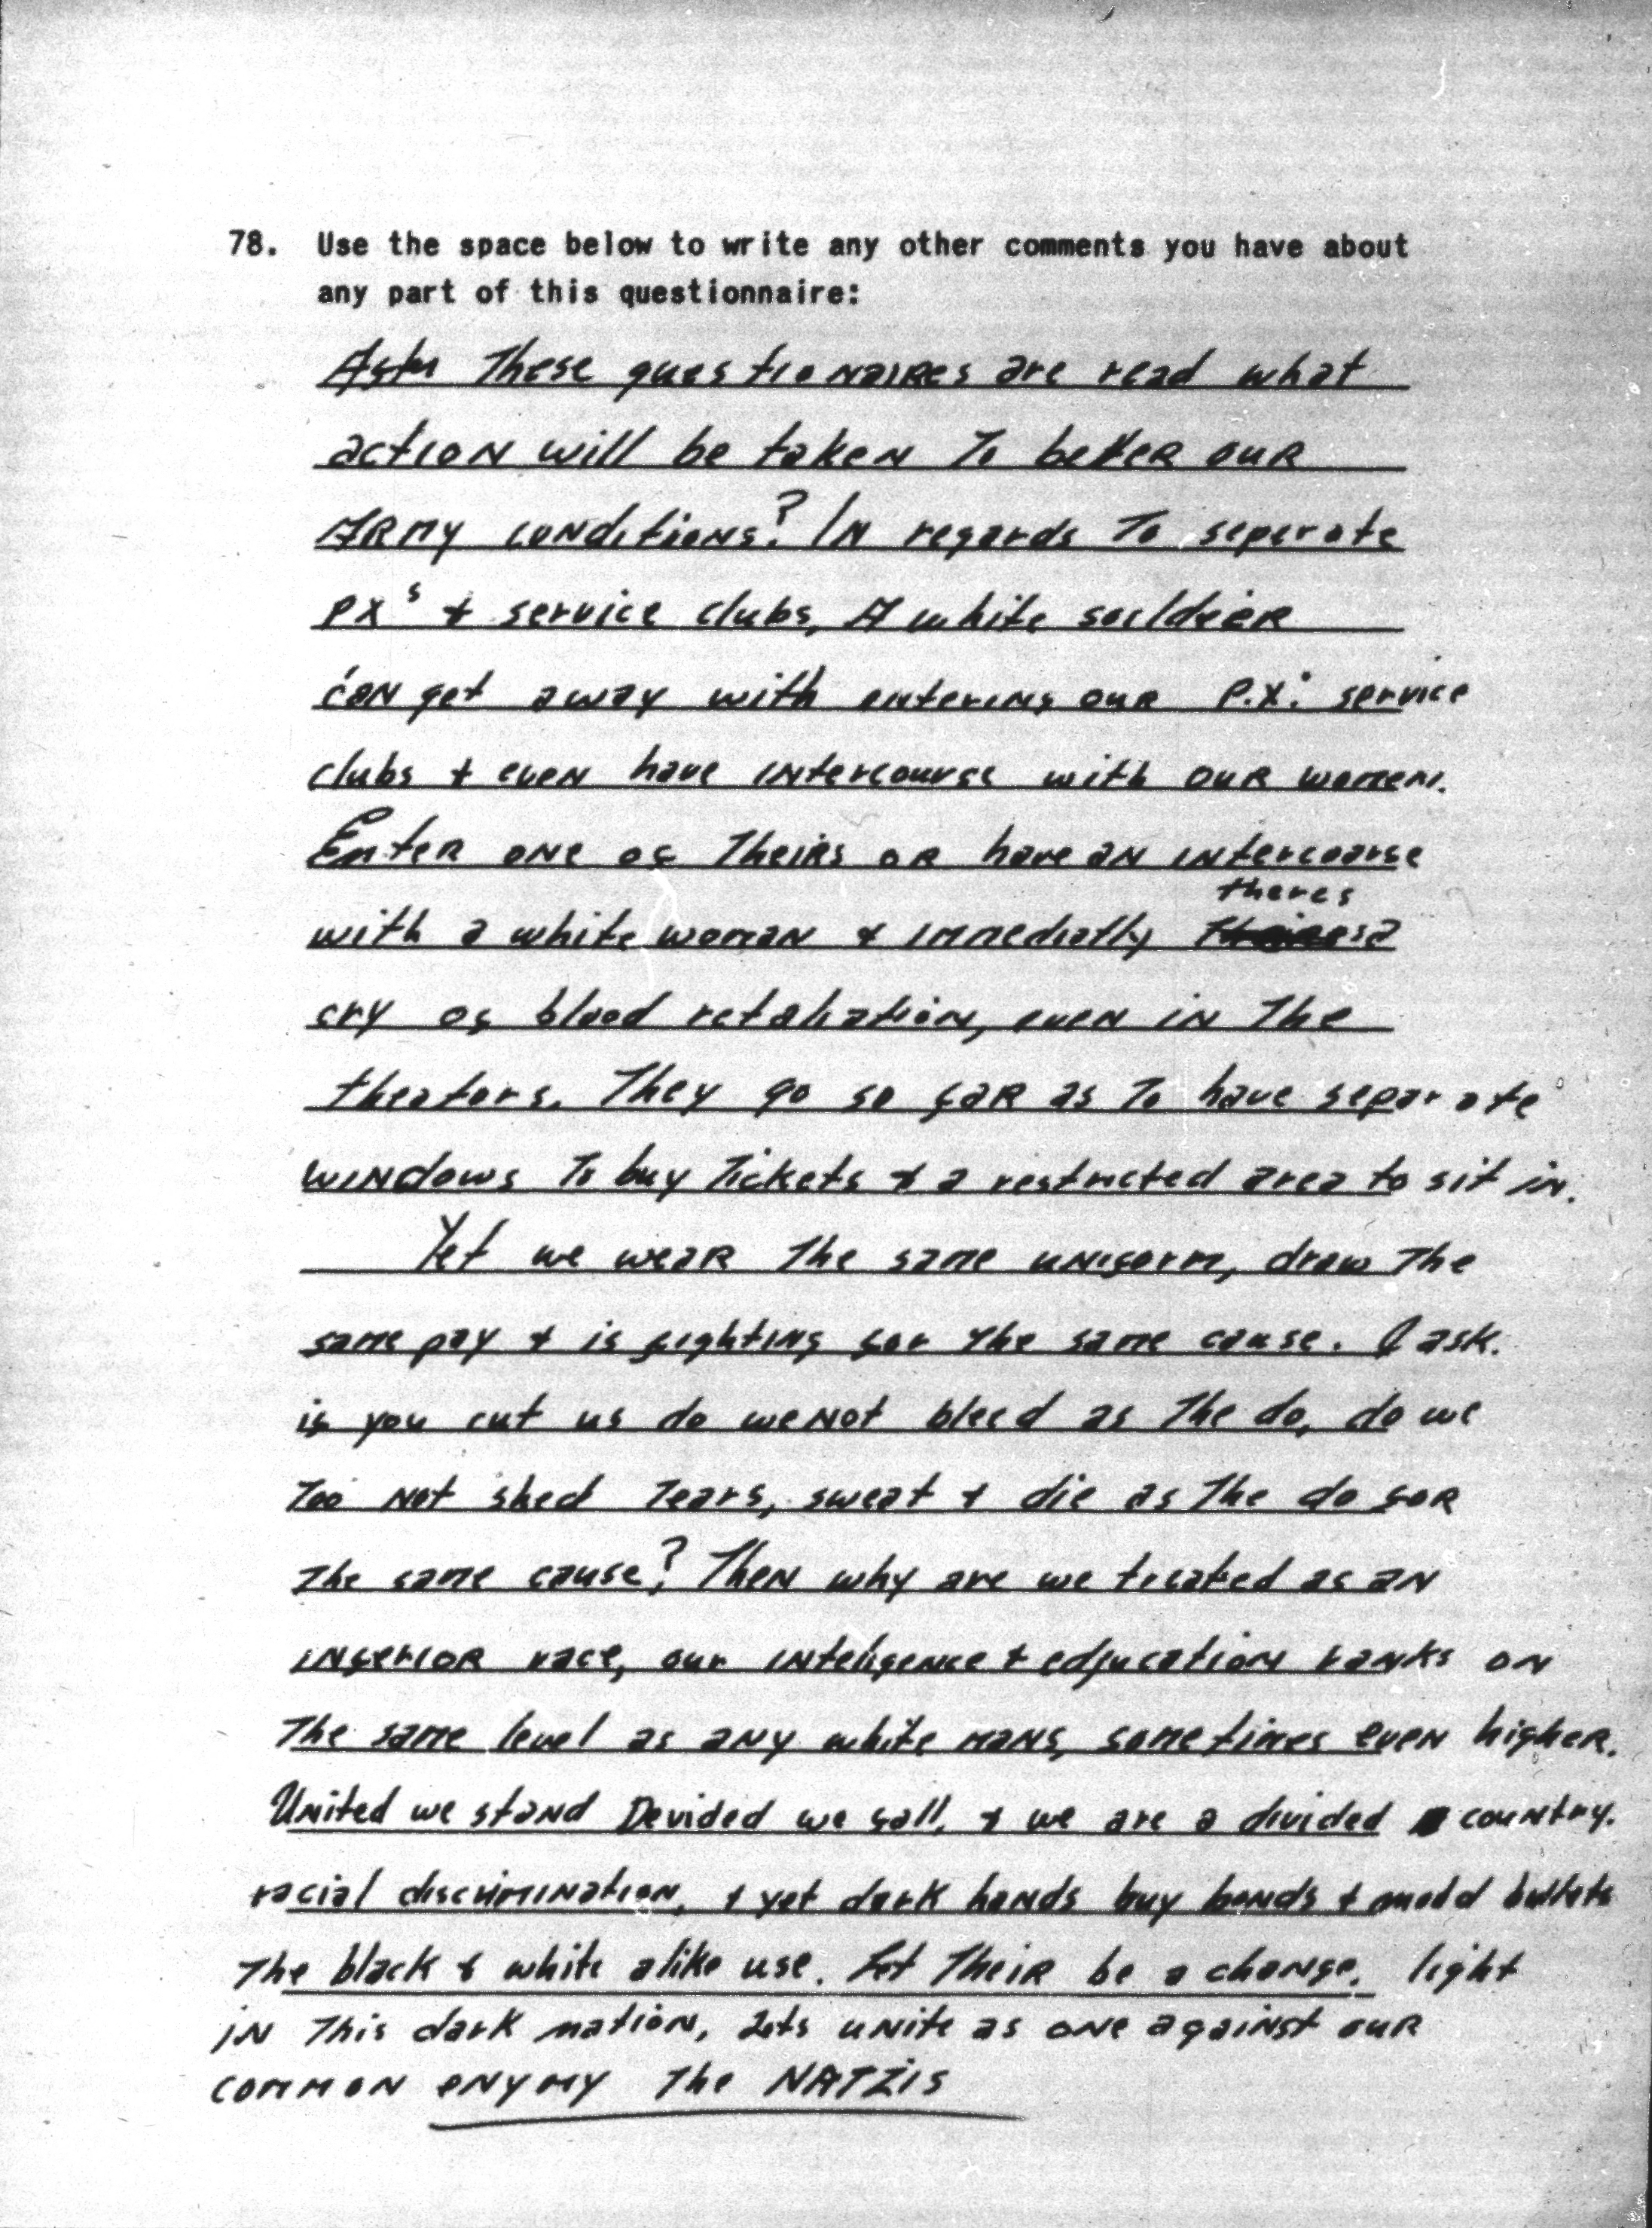 78. Use the space below to write any other comments you have about
any part of this questionnaire:
After These questionaires are read what
action will be taken To better our
Army conditions? In regards To seperate
px's + service clubs, A white souldier
can get away with entering our P.X.' service
clubs + even have intercourse with our women.
Enter one of Theirs or have an intercoarse
theres
with a white woman + immediatly a
cry of blood retaliation, even in The
theators. They go so far as To have separate
windows To buy Tickets + a restricted area to sit in.
Yet we wear The same uniform, draw The
same pay + is fighting for The same cause. I ask.
if you cut us do we not bleed as The do, do we
Too not shed Tears, sweat + die as The do for
The same cause? Then why are we treated as an
inferior race, our inteligence + edjucation ranks on
The same level as any white mans, sometimes even higher.
United we stand Devided we fall, + we are a divided country.
racial discrimination, + yet dark hands buy bonds + mold bullets
The black & white alike use. Let Their be a change, light
in This dark nation, Lets unite as one against our
common enymy The NATZIS